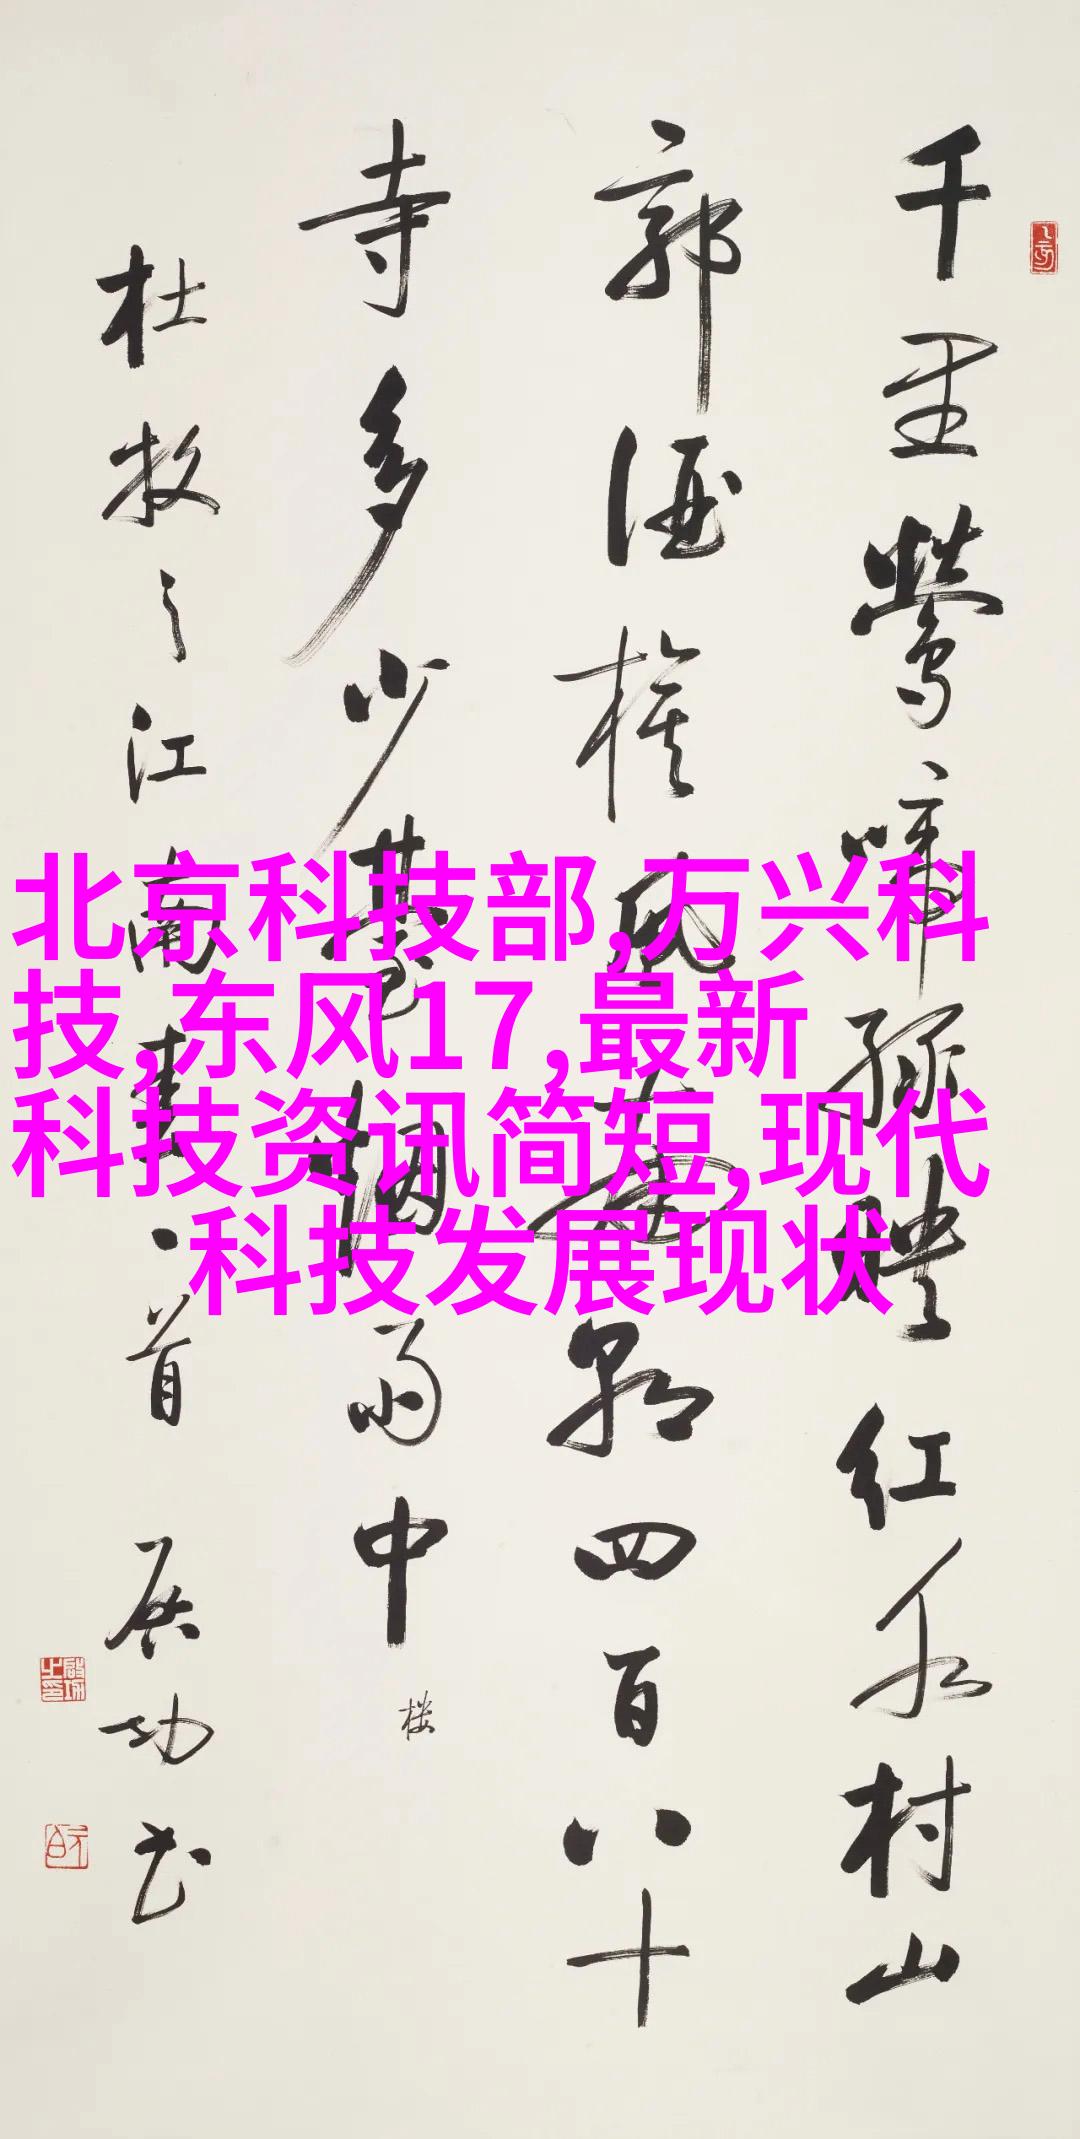 千里莺啼绿映红水村山
郭酒旗风南朝四百八十
寺多少台烟雨中
楼
杜牧之江南春一首 启功书
北京科技部,万兴科
技,东风17,最新
科技资讯简短,现代
科技发展现状